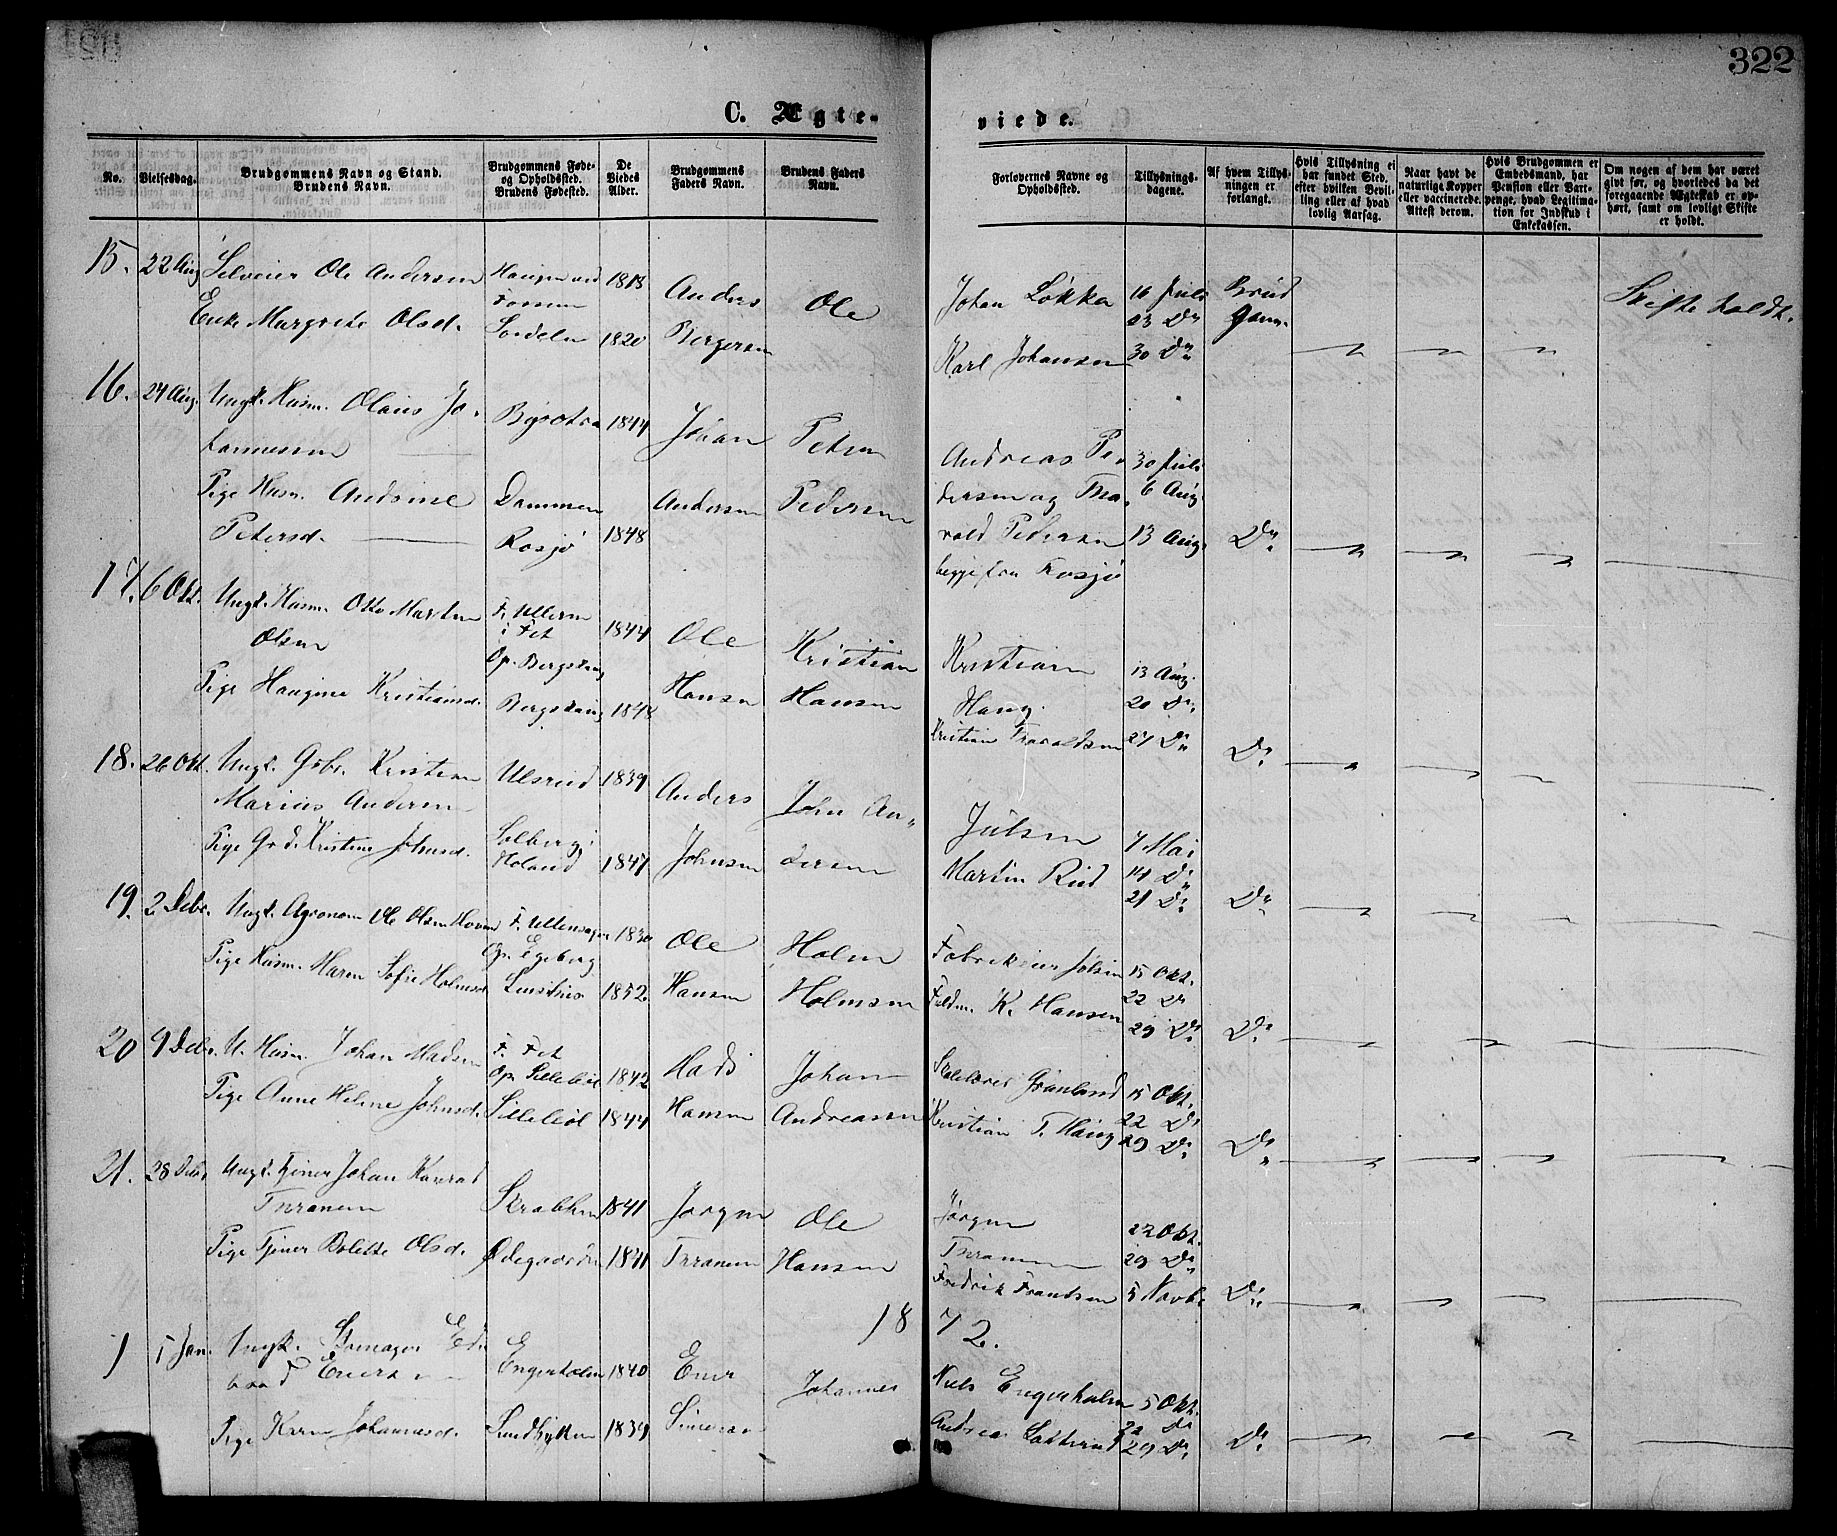 322
C. Ægte-
viede.
No.
Vielsesdag.
Brudgommens Navn og Stand.
Brudens Navn.
Brudgommens Føde-
og Opholdssted.
Brudens Fødested.
De
Viedes
Alder.
Brudgommens
Faders Navn.
Brudens Faders
Navn.
Forlovernes Navne og
Opholdssted.
Tillysnings-
dagene.
Af hvem Tillys-
ningen er
forlangt.
Hvis Tillysning ei
har fundet Sted,
efter hvilken Bevil-
ling eller af hvad
lovlig Aarsag.
Naar havt de
naturlige Kopper
eller vaccinerede.
Attest derom.
Hvis Brudgommen er
Embedsmand, har
Pension eller Vart-
penge, hvad Legitima-
tion for Indskud i
Enkekassen.
Om nogen af dem har været
gift før, og hvorledes da det
foregaaende Ægteskab er op-
hørt, samt om lovligt Skifte
er holdt.
15. 22 Aug Selveier Ole Andersen 1818 Anders Ole
Enke Margrete Olsd. 1820 Bergersen
Johan Løkka 16 Juli Brud
23 Do gom.
Karl Johansen 30 Do
Skifte holdt.
16. 24 Aug. Ungk. Husm. Olaus Jo-
hannessen 1844 Johan Petersen
Pige Husm. Andsine Dammen Andersen Pedersen
Petersd. Rosjø 1848
Andreas Pe- 30 Juli
dersen og Tho- 6 Aug
vald Pedersen 13 Aug. Do
begge fra Rosjø
17. 6 Okt. Ungk. Husm. Otto Martin F. Ullern
i Fet 1844 Ole Kristian
Olsen Op. Bergskaug
Pige Haugine Kristiansd. Bergskaug 1848 Hansen Hansen
Kristian 13 Aug.
Haug. 20 Do
Kristian Thoraldsen 27 Do Do
18. 26 Okt. Ungk. Gbr. Kristian Ulsrud 1839 Anders John An-
Marius Andersen
Pige Gd. Kristine Johnsd. Solberg i
Høland 1847 Johnsen dersen
Julsen 7 Mai
Martin Rud 14 Do
21 Do Do
19. 2 Debr. Ungk. Agronom Ole Olsen Hoven F. Ullensager 1830 Ole Holm
Op. Egeberg
Pige Husm. Maren Sofie Holmsd. 1852 Hansen Holmsen
Fabrikeier Jølsen 15 Okt.
22 Do
K. Hansen 29 Do Do
20 9 Debr. U. Husm. Johan Madsen F. Fet
Op. Sillebøl 1842 Mads Johan
Pige Anne Helene Johnsd. Sillebøl 1844 Hansen Andreassen
Skolelærer Grønland 15 Okt.
Kristian T. Haug 22 Do
29 Do Do
21. 28 Debr Ungk. Tjener Johan Konrad
Thranem Skrabken 1841 Jørgen Ole
Pige Tjener Bolette Olsd. Ødegaarden 1841 Thranem Hansen
Jørgen 22 Okt.
Thranem 29 Do
Fredrik Frantsen 5 Novbr Do
1872.
1 5 Jan. Ungk. Skomager Ed-
vard Enersen Engerholm 1840 Ener Johannes
Pige Karen Johannesd. Sundbykken 1839 Simensen
Niels Engerholm 15 Okt.
Andreas 22 Do
29 Do Do